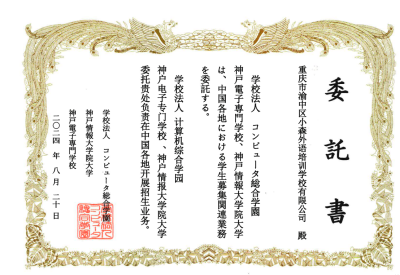 委託書
重庆市渝中区小森外语培训学校有限公司 殿
学校法人 コンピュータ総合学園
神戸電子専門学校、神戸情報大学院大学
は、中国各地における学生募集関連業務
を委託する。
学校法人 计算机综合学园
神户电子专门学校、神户情报大学院大学
委托贵处负责在中国各地开展招生业务。
二〇二四年八月二十日
学校法人 コンピュータ総合学園
神戸情報大学院大学
神戸電子専門学校